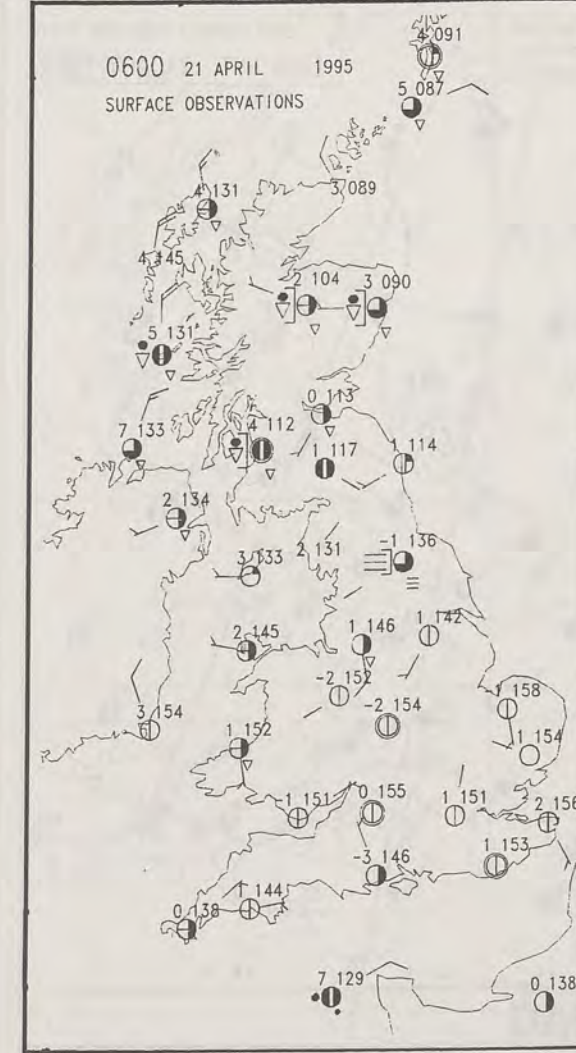 0600 21 APRIL 1995
SURFACE OBSERVATIONS
4 091
5 087
4 131
3 089
4 145
2 104
3 090
5 131
0 113
7 133
4 112
1 117
1 114
2 134
3 133
2 131
-1 136
2 145
1 146
1 142
-2 152
-2 154
-1 158
3 154
1 152
1 154
-1 151
0 155
1 151
2 156
1 153
-3 146
1 144
0 138
7 129
0 138